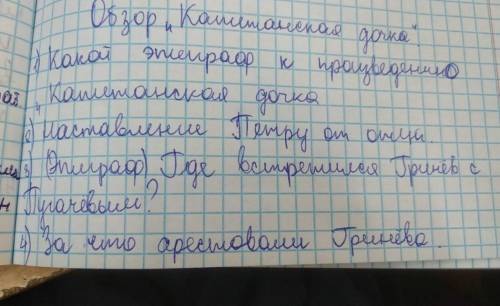 Обзор „Капитанская дочка".
1) Какой эпиграф к произведению
„Капитанская дочка
2) Наставление Петру от отца.
3) (Эпиграф) Где встретился Гринёв с
Пугачёвым?
4) За что арестовали Гринёва.